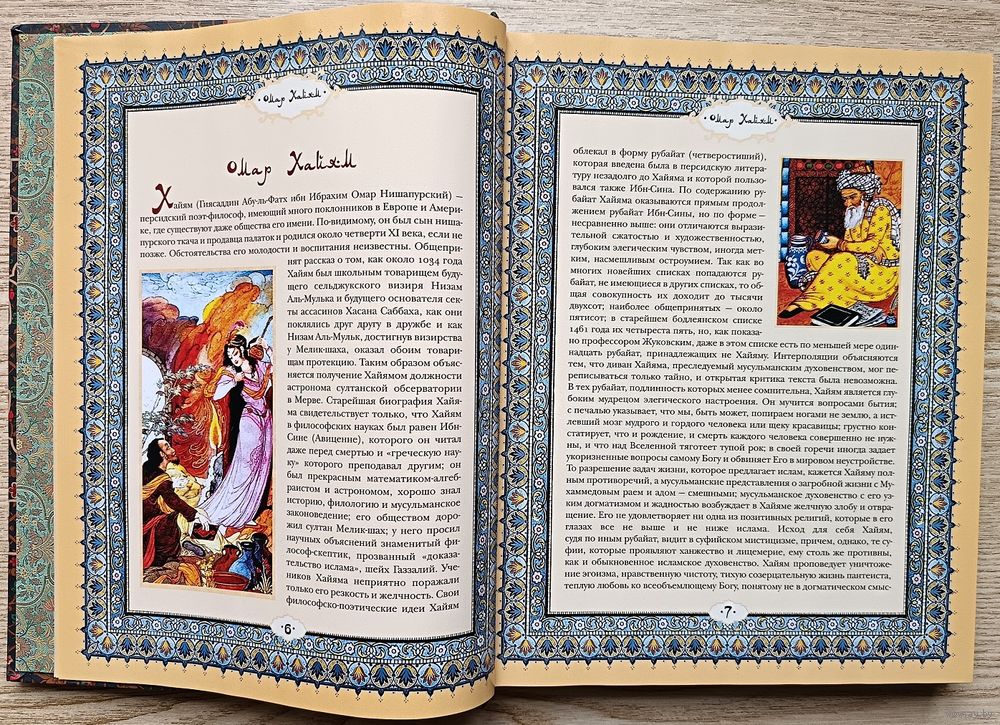 Омар Хайям
Омар Хайям
Хайям (Гиясаддин Абу-ль-Фатх ибн Ибрахим Омар Нишапурский) –
персидский поэт-философ, имеющий много поклонников в Европе и Амери-
ке, где существуют даже общества его имени. По-видимому, он был сын ниша-
пурского ткача и продавца палаток и родился около четверти XI века, если не
позже. Обстоятельства его молодости и воспитания неизвестны. Общепри-
нят рассказ о том, как около 1034 года
Хайям был школьным товарищем буду-
щего сельджукского визиря Низам
Аль-Мулька и будущего основателя сек-
ты ассасинов Хасана Саббаха, как они
поклялись друг другу в дружбе и как
Низам Аль-Мульк, достигнув визирства
у Мелик-шаха, оказал обоим товари-
щам протекцию. Таким образом объяс-
няется получение Хайямом должности
астронома султанской обсерватории
в Мерве. Старейшая биография Хайя-
ма свидетельствует только, что Хайям
в философских науках был равен Ибн-
Сине (Авиценне), которого он читал
даже перед смертью и «греческую нау-
ку» которого преподавал другим; он
был прекрасным математиком-алгеб-
раистом и астрономом, хорошо знал
историю, филологию и мусульманское
законоведение; его обществом доро-
жил султан Мелик-шах; у него просил
научных объяснений знаменитый фи-
лософ-скептик, прозванный «доказа-
тельство ислама», шейх Газзалий. Уче-
ников Хайяма неприятно поражали
только его резкость и желчность. Свои
философско-поэтические идеи Хайям
6
Омар Хайям
облекал в форму рубайат (четверостиший),
которая введена была в персидскую литера-
туру незадолго до Хайяма и которой пользо-
вался также Ибн-Сина. По содержанию ру-
байат Хайяма оказываются прямым продол-
жением рубайат Ибн-Сины, но по форме –
несравненно выше: они отличаются вырази-
тельной сжатостью и художественностью,
глубоким элегическим чувством, иногда мет-
ким, насмешливым остроумием. Так как во
многих новейших списках попадаются ру-
байат, не имеющиеся в других списках, то об-
щая совокупность их доходит до тысячи
двухсот; наиболее общепринятых – около
пятисот; в старейшем бодлеянском списке
1461 года их четыреста пять, но, как показа-
но профессором Жуковским, даже в этом списке есть по меньшей мере один-
надцать рубайат, принадлежащих не Хайяму. Интерполяции объясняются
тем, что диван Хайяма, преследуемый мусульманским духовенством, мог пе-
реписываться только тайно, и открытая критика текста была невозможна.
В тех рубайат, подлинность которых менее сомнительна, Хайям является глу-
боким мудрецом элегического настроения. Он мучится вопросами бытия;
с печалью указывает, что мы, быть может, попираем ногами не землю, а ист-
левший мозг мудрого и гордого человека или щеку красавицы; грустно кон-
статирует, что и рождение, и смерть каждого человека совершенно не нуж-
ны, и что над Вселенной тяготеет тупой рок; в своей горечи иногда задает
укоризненные вопросы самому Богу и обвиняет Его в мировом неустройстве.
То разрешение задач жизни, которое предлагает ислам, кажется Хайяму пол-
ным противоречий, а мусульманские представления о загробной жизни с Му-
хаммедовым раем и адом – смешными; мусульманское духовенство с его уз-
ким догматизмом и жадностью возбуждает в Хайяме желчную злобу и отвра-
щение. Его не удовлетворяет ни одна из позитивных религий, которые в его
глазах все не выше и не ниже ислама. Исход для себя Хайям,
судя по иным рубайат, видит в суфийском мистицизме, причем, однако, те су-
фии, которые проявляют ханжество и лицемерие, ему столь же противны,
как и обыкновенное исламское духовенство. Хайям проповедует уничтоже-
ние эгоизма, нравственную чистоту, тихую созерцательную жизнь пантеиста,
теплую любовь ко всеобъемлющему Богу, понятому не в догматическом смыс-
7